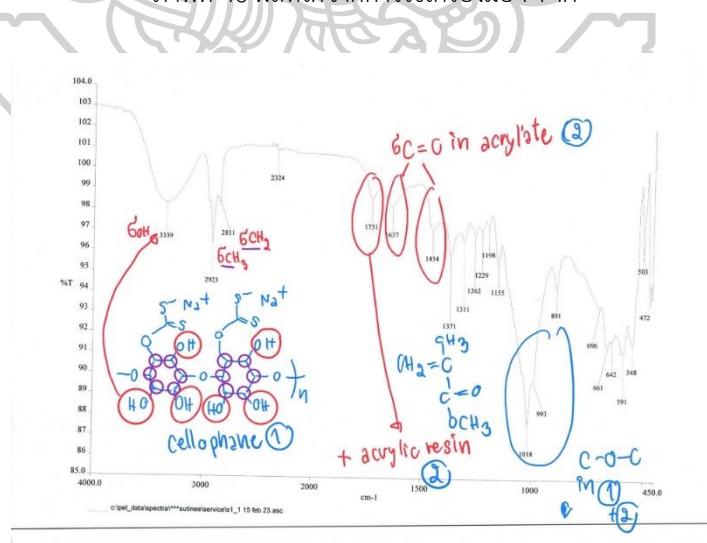 104.0
103
102
101
100
99
98
97
96
95
%T 94
93
92
91
90
89
88
87
86
85.0
4000.0 3000 2000 1500 1000 450.0
cm-1
3339
2923
2851
2324
1731
1637
1454
1371
1311
1262
1229
1198
1155
1018
993
891
696
661
642
591
548
503
472
6OH
6CH3
6CH2
6C=O in acrylate 2
S- Na+ S- Na+
S S
O O
OH OH
-O -O- -O- n
HO OH HO OH
cellophane 1
CH3
CH2=C
C=O
OCH3
+ acrylic resin
2
C-O-C
in 1
+2